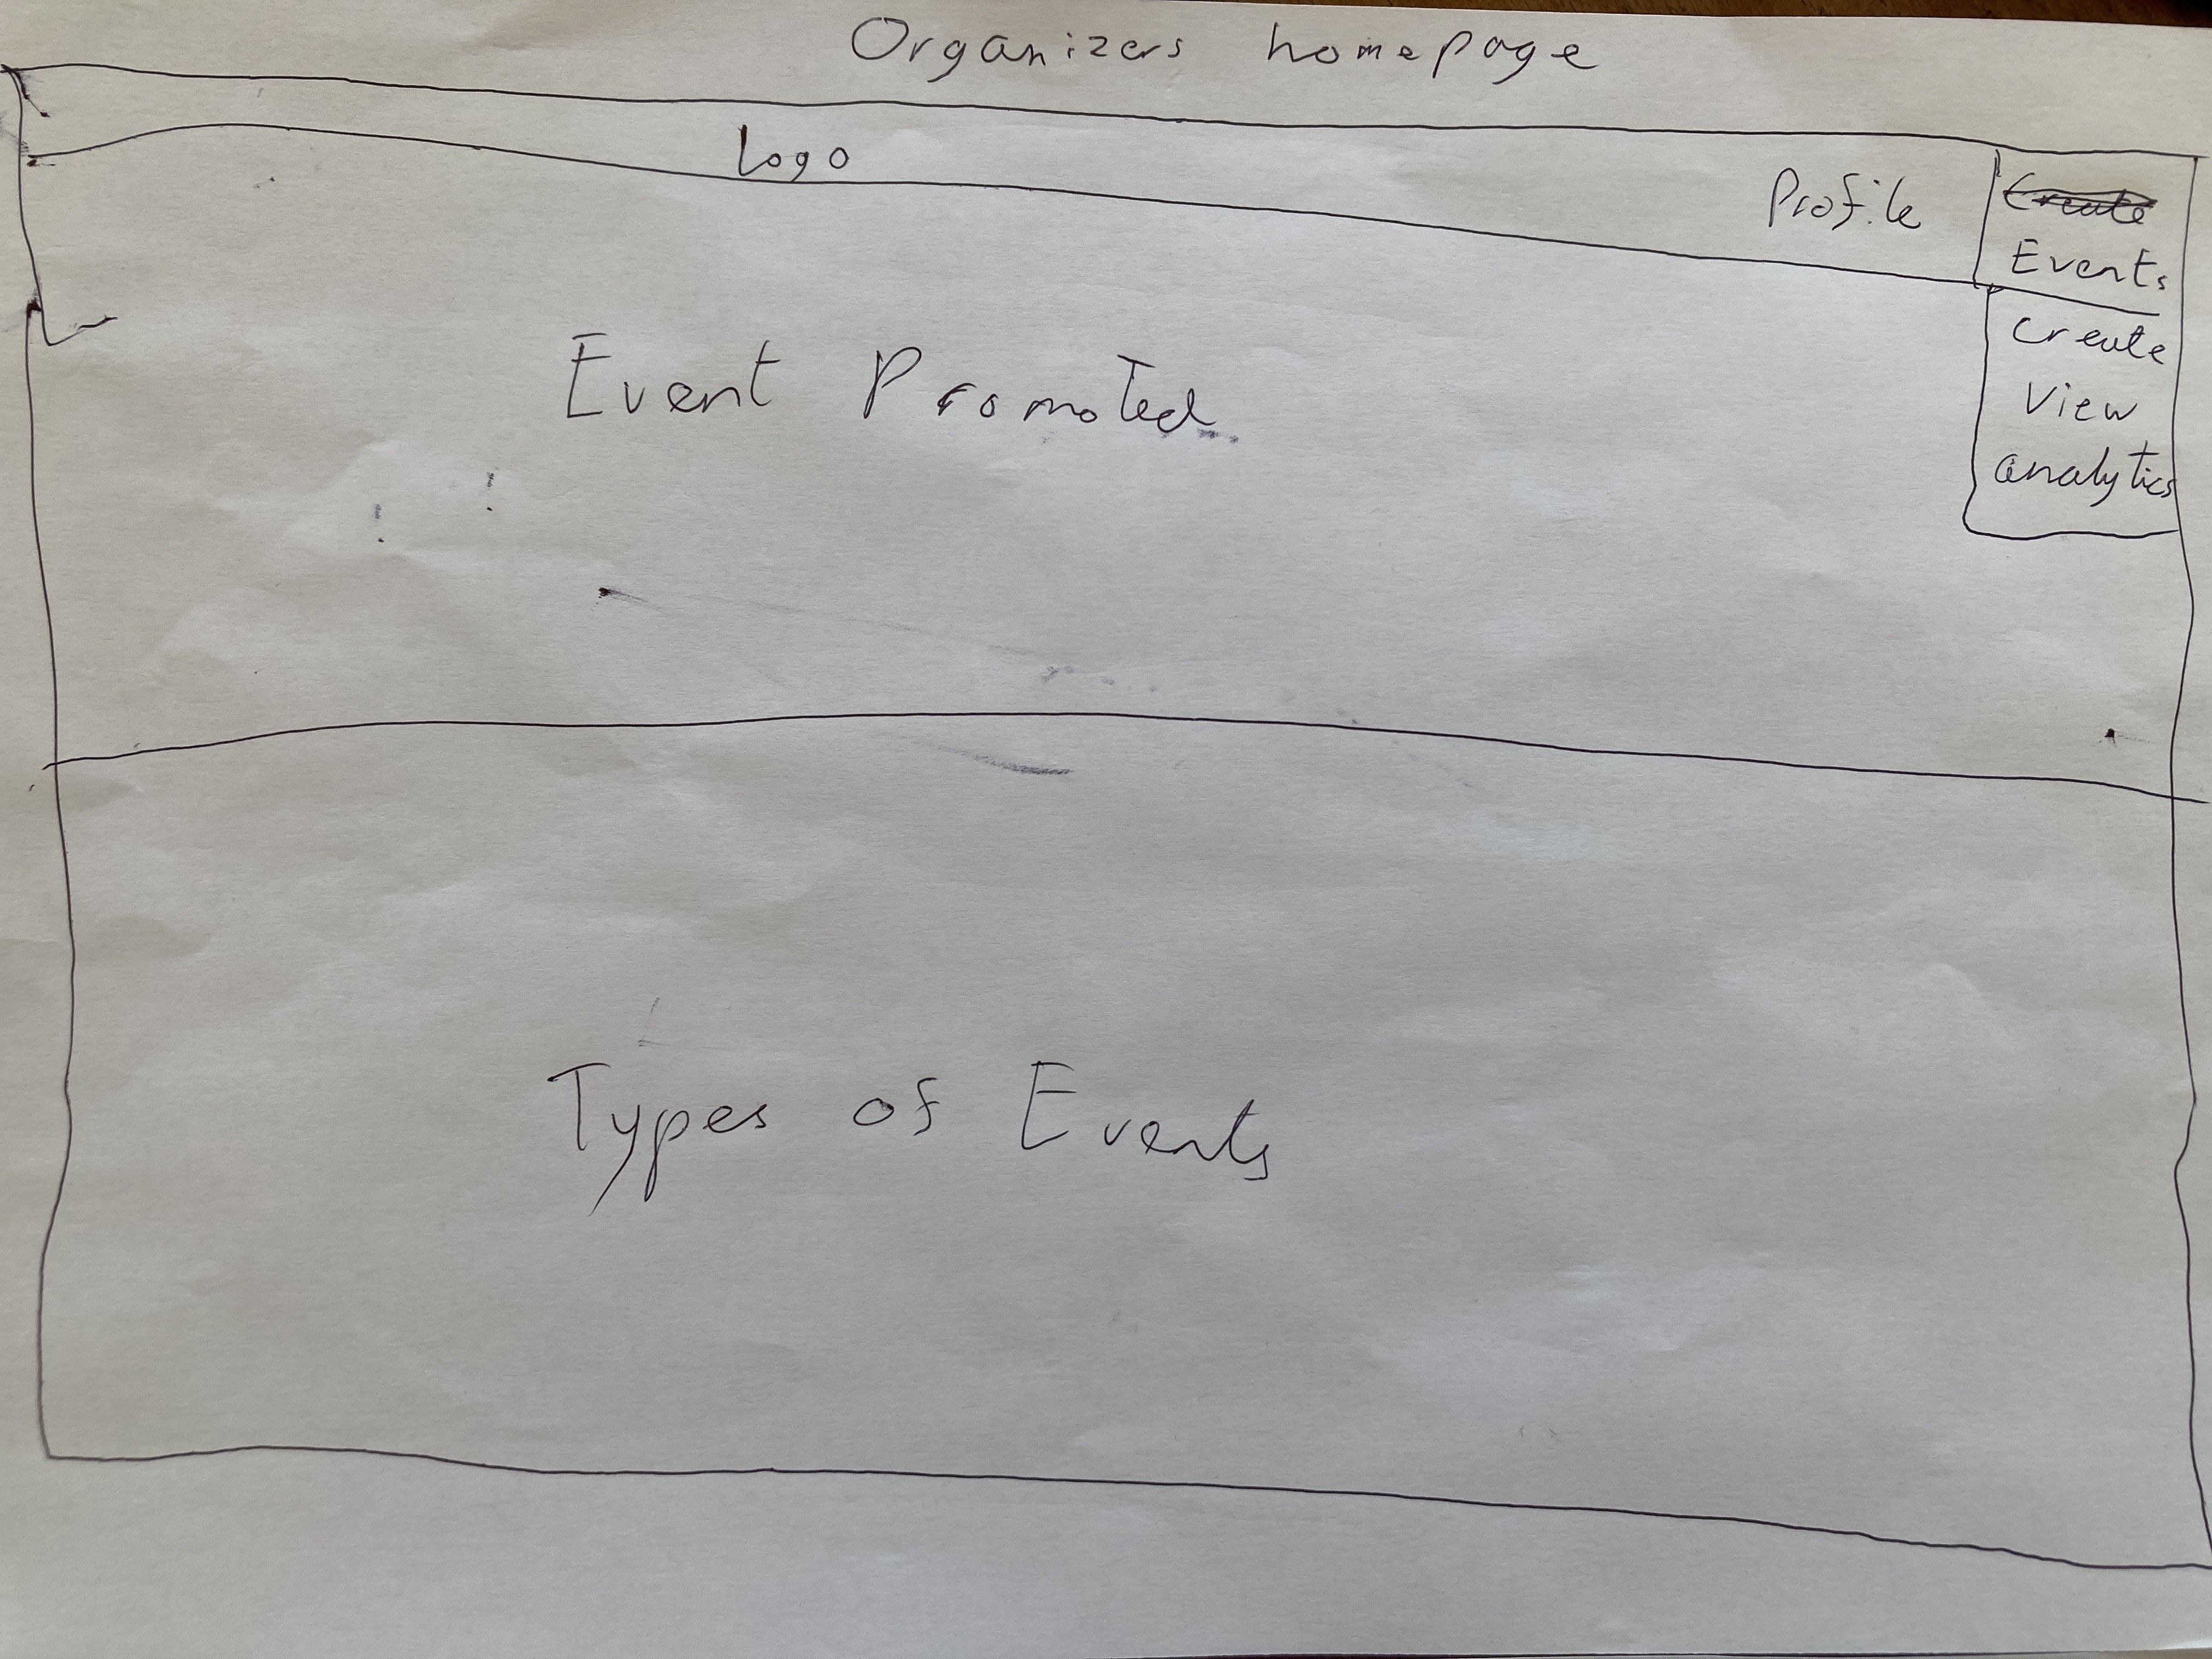 Organizers homepage
Logo
Profile
Create
Events
Create
View
analytics
Event Promoted
Types of Events